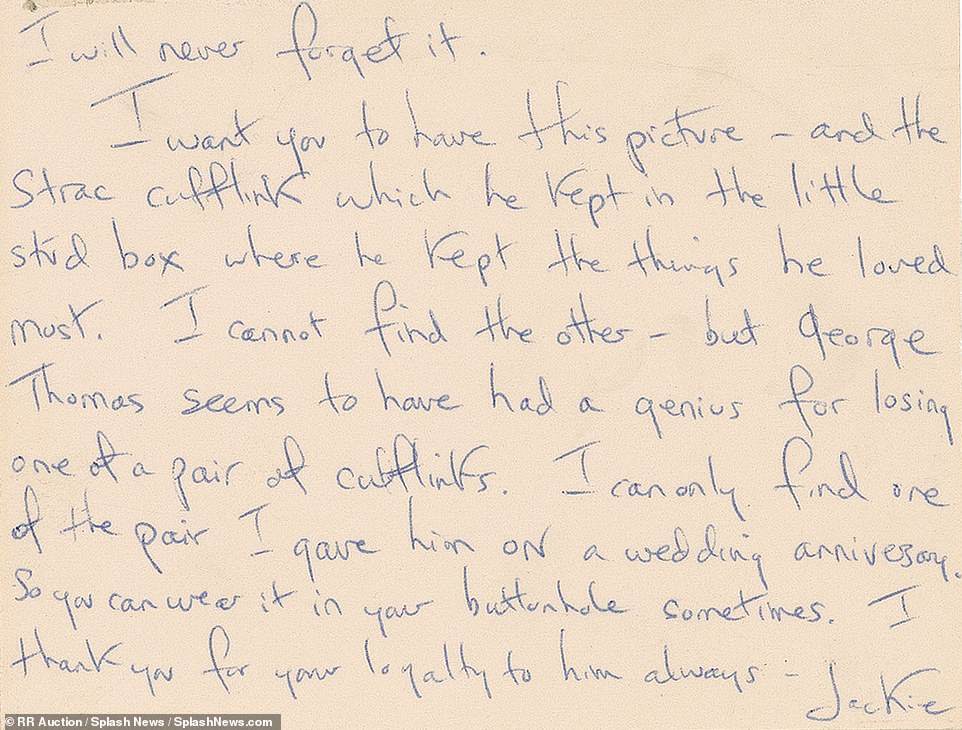 I will never forget it.
I want you to have this picture – and the
Strac cufflink which he kept in the little
stud box where he kept the things he loved
most. I cannot find the other – but George
Thomas seems to have had a genius for losing
one of a pair of cufflinks. I can only find one
of the pair I gave him on a wedding annivesary.
So you can wear it in your buttonhole sometimes. I
thank you for your loyalty to him always –
Jackie
© RR Auction / Splash News / SplashNews.com